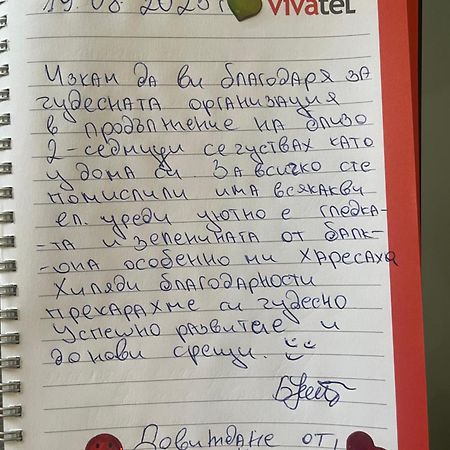 19.08.2025г
vivatel
Искам да ви благодаря за
чудесната организация
в продължение на близо
2-седмици се чуствах като
у дома си За всичко сте
помислили има всякакви
ел. уреди уютно е гледка-
-та и зеленината от балк-
-она особенно ми харесаха
Хиляди благодарности
прекарахме си чудесно
Успешно развитие и
до нови срещи.
Довиждане от